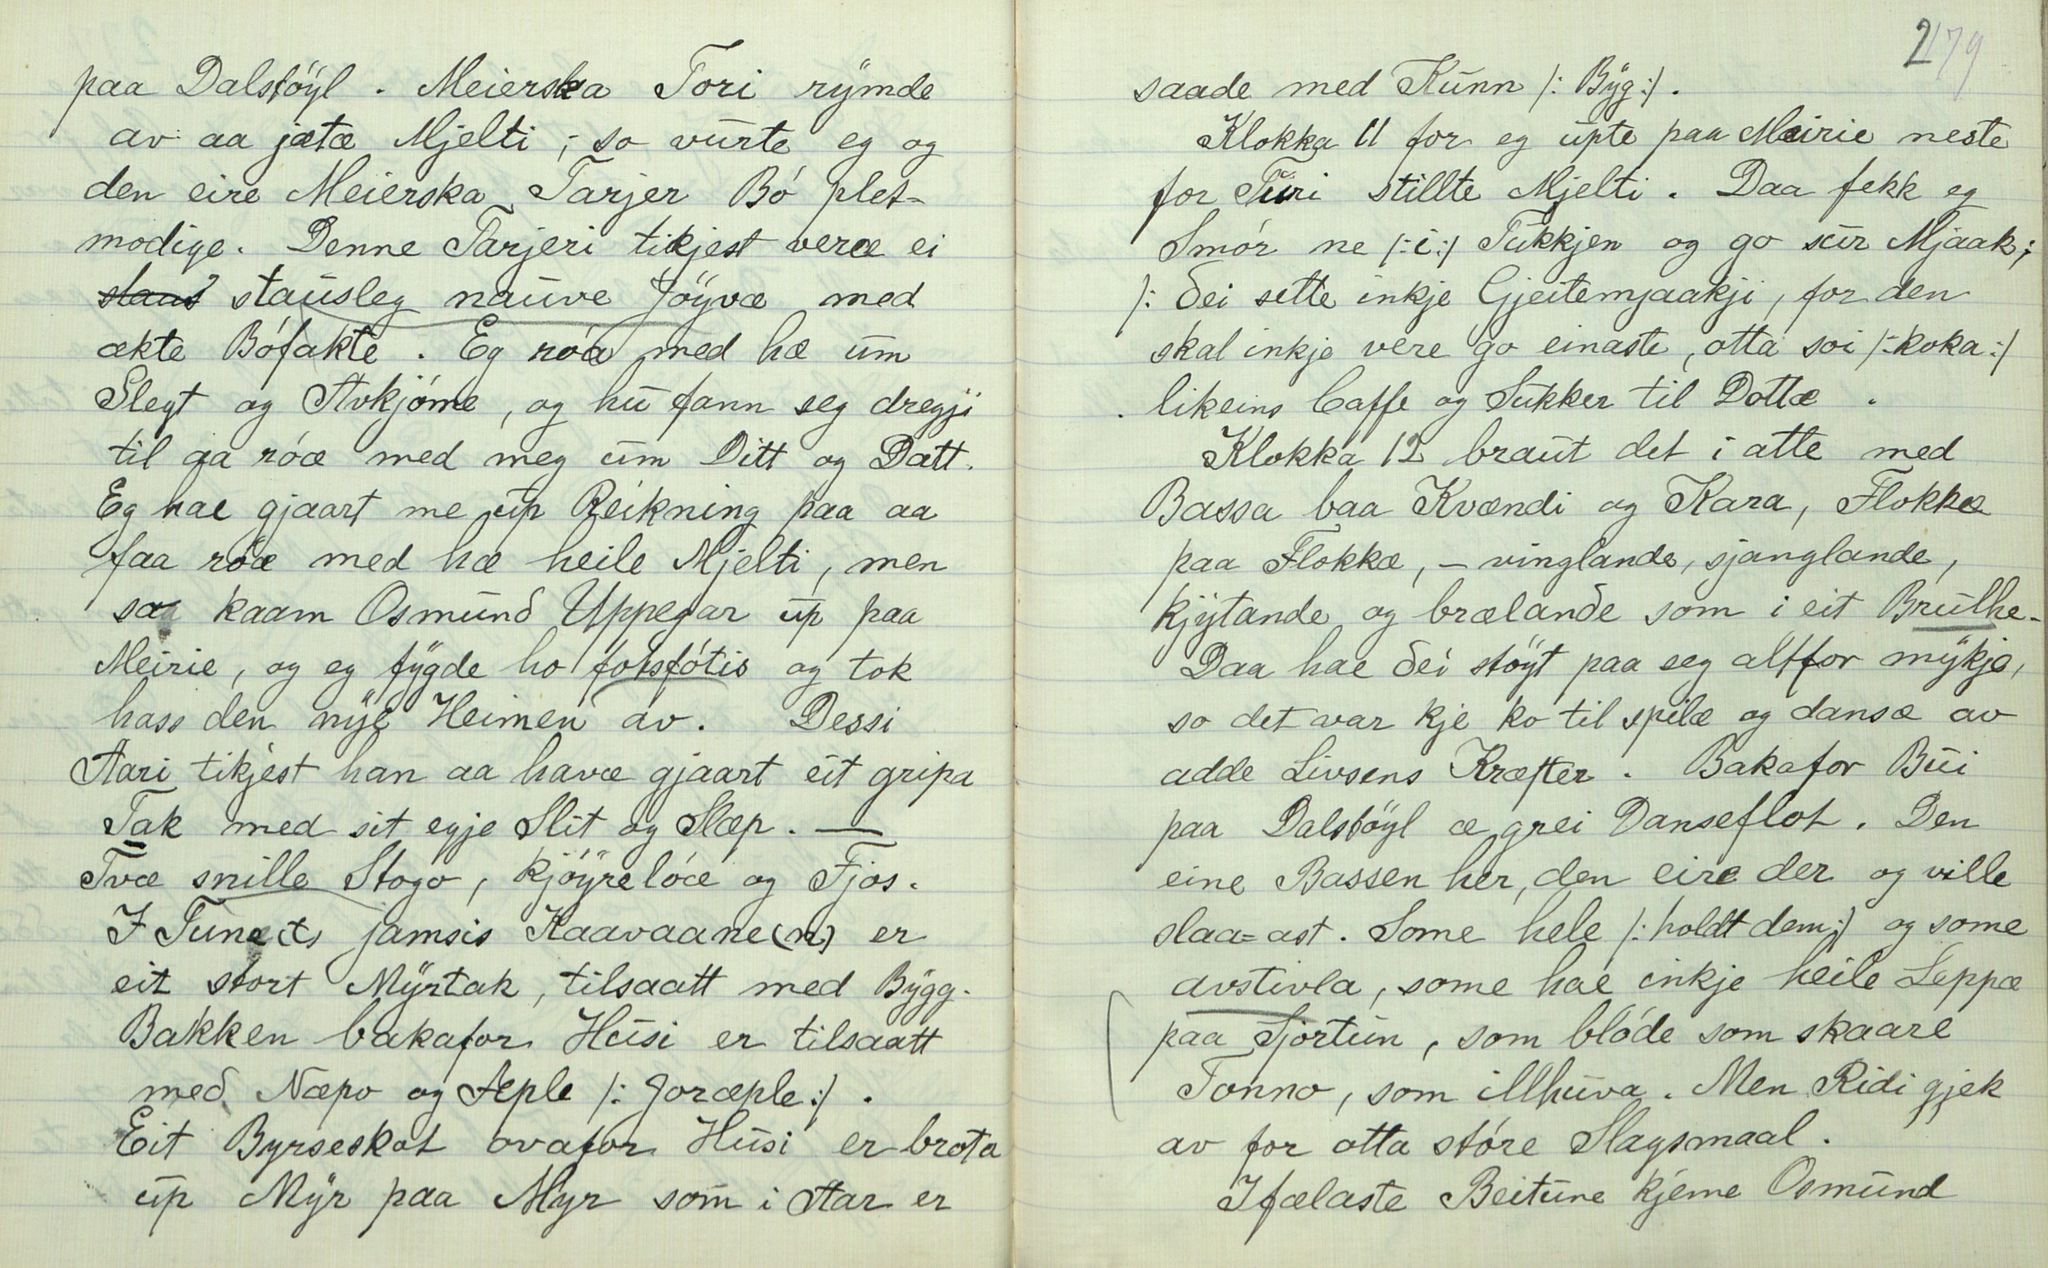 paa Dalstöyl. Meierska Tori rymde
av aa jætæ Mjelti; so vurte eg og
den eire Meierska Tarjer Bó plet-
modige. Denne Tarjeri tikjest veræ ei
stausleg nauve Jöyvæ med
ækte Bófakte. Eg róa med hæ um
Slegt og Avkjóme, og hu fann seg dregji
til aa róæ med meg um Ditt og Datt.
Eg hae gjaart me up Reikning paa aa
faa róæ med hæ heile Mjelti, men
saa kaam Osmund Uppegar up paa
Meirie, og eg fygde ho forsfótis og tok
hass den nye Heimen av. Dessi
Aari tikjest han aa havæ gjaart eit gripa
Tak med sit egje Slit og Slæp. —
Tvæ snille Stogo, kjöyrelóæ og Fjos.
I Tunets jamsis Kaavaane(n) er
eit stort Myrtak, tilsaatt med Bygg.
Bakken bakafor Husi er tilsaatt
med Næpo og Æple /: Joræple :/.
Eit Byrseskot ovafor Husi er brota
up Myr paa Myr som i Aar er
2179
saade med Kunn /: Byg :/.
Klokka 11 for eg upte paa Meirie neste
for Turi stillte Mjelti. Daa fekk eg
Smór ne /: i :/ Tukkjen og go sur Mjaak;
/: dei sette inkje Gjeitemjaakji, for den
skal inkje vere go einaste, otta soi /: koka :/
likeins Caffe og Sukker til Dottæ.
Klokka 12 braut det i atte med
Bassa baa Kvændi og Kara, Flokkæ
paa Flokkæ, – vinglande, sjanglande,
kjytande og brælande som i eit Brulhe-
Daa hae dei stöyt paa seg altfor mykje,
so det var kje ko til spilæ og dansæ av
adde Livsens Kræfter. Bakafor Bui
paa Dalstöyl æ grei Danseflot. Den
eine Bassen her, den eire der og ville
slaa=ast. Some hele /: holdt dem :/ og some
avstivla, some hae inkje heile Leppæ
paa Sjortun, som blóde som skaare
Tonno, som illhuva. Men Ridi gjek
av for otta störe Slagsmaal.
I fælaste Beitune kjeme Osmund